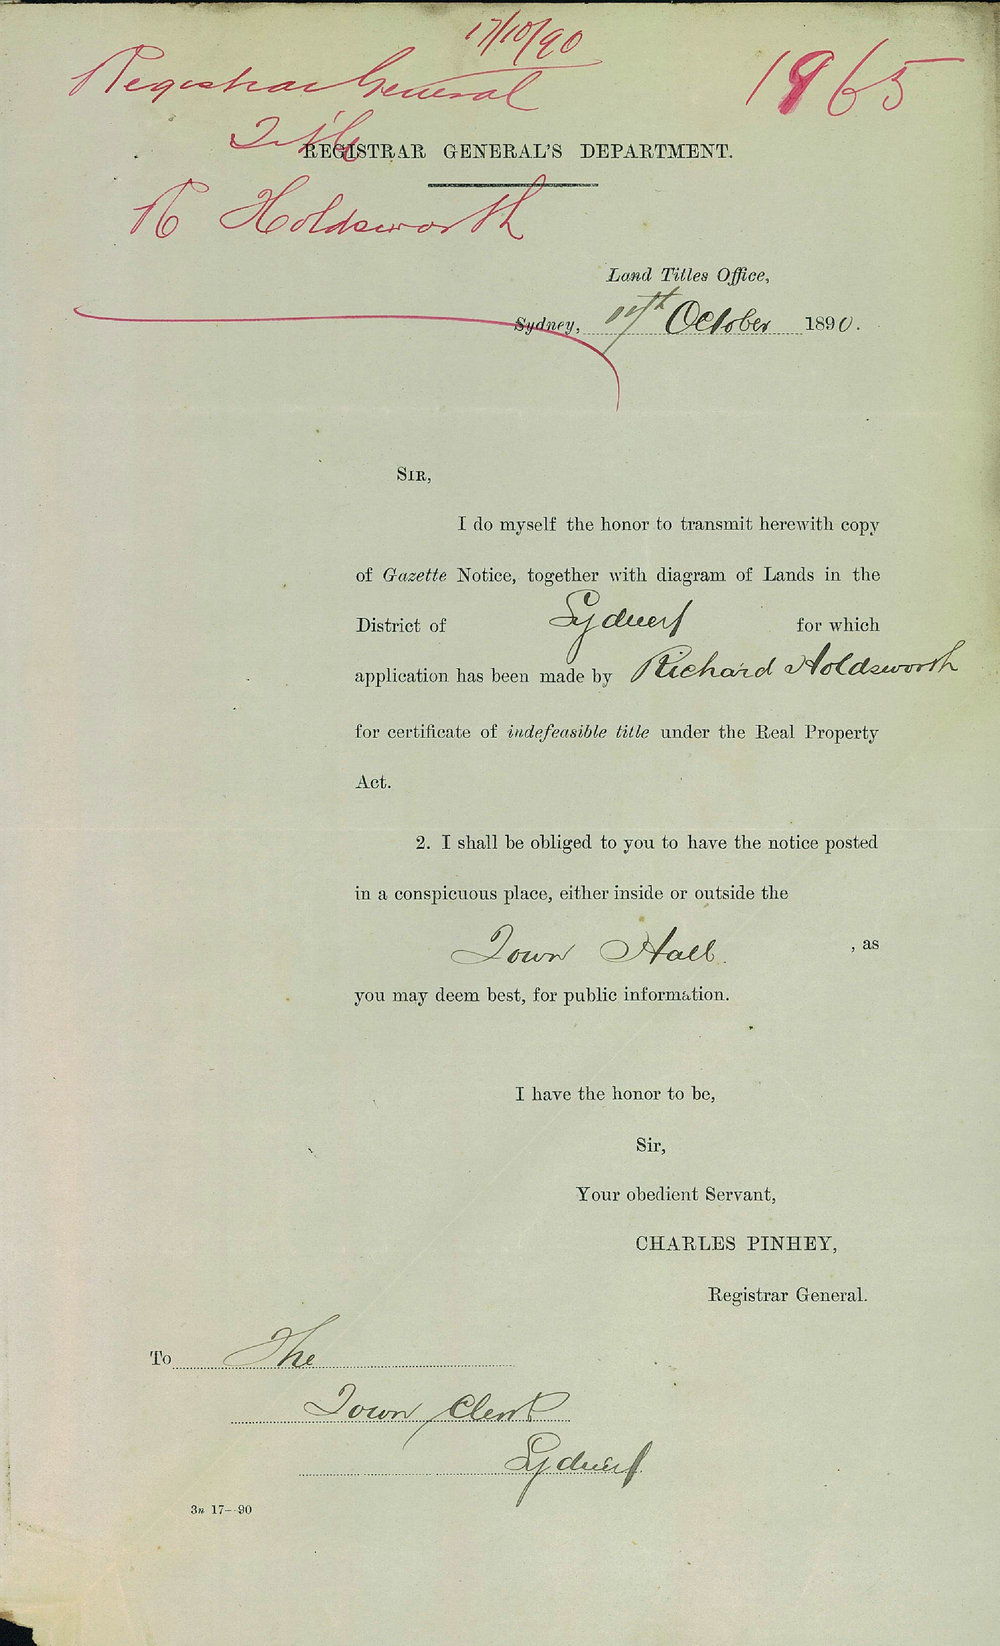 17/10/90
Registrar General
1865
Title
REGISTRAR GENERAL'S DEPARTMENT.
R Holdsworth
Land Titles Office,
Sydney, 17th October 1890.
SIR,
I do myself the honor to transmit herewith copy
of Gazette Notice, together with diagram of Lands in the
District of Sydney for which
application has been made by Richard Holdsworth
for certificate of indefeasible title under the Real Property
Act.
2. I shall be obliged to you to have the notice posted
in a conspicuous place, either inside or outside the
Town Hall, as
you may deem best, for public information.
I have the honor to be,
Sir,
Your obedient Servant,
CHARLES PINHEY,
Registrar General.
To The
Town Clerk
Sydney
3n 17—90